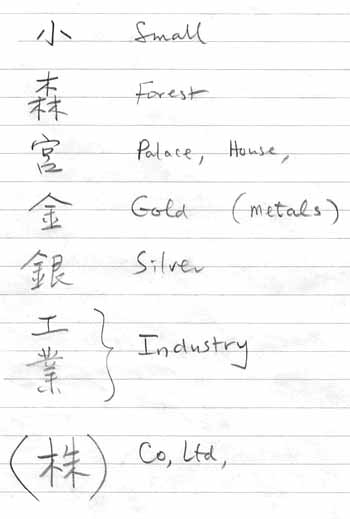 小 Small
森 Forest
宮 Palace, House,
金 Gold (metals)
銀 Silver
工業 } Industry
(株) Co, Ltd,